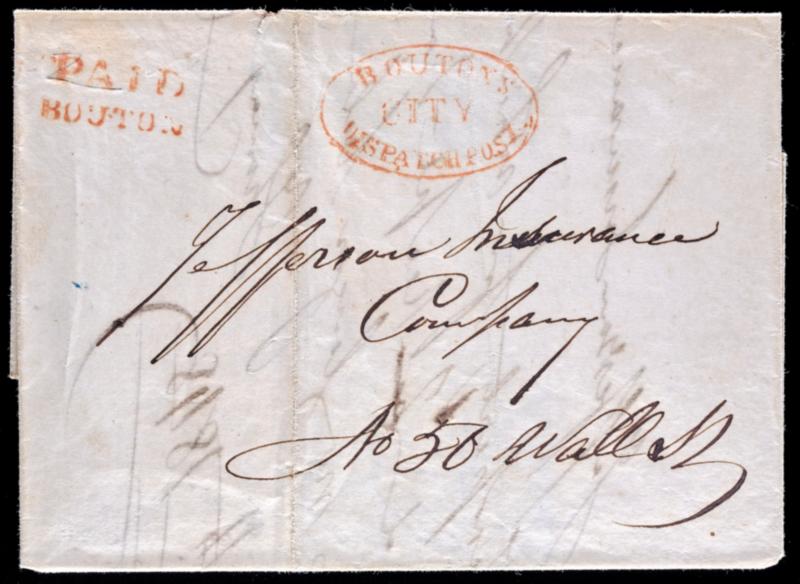 PAID
BOUTON
BOUTON'S
CITY
DISPATCH POST.
Jefferson Insurance
Company
No 50 Wall St